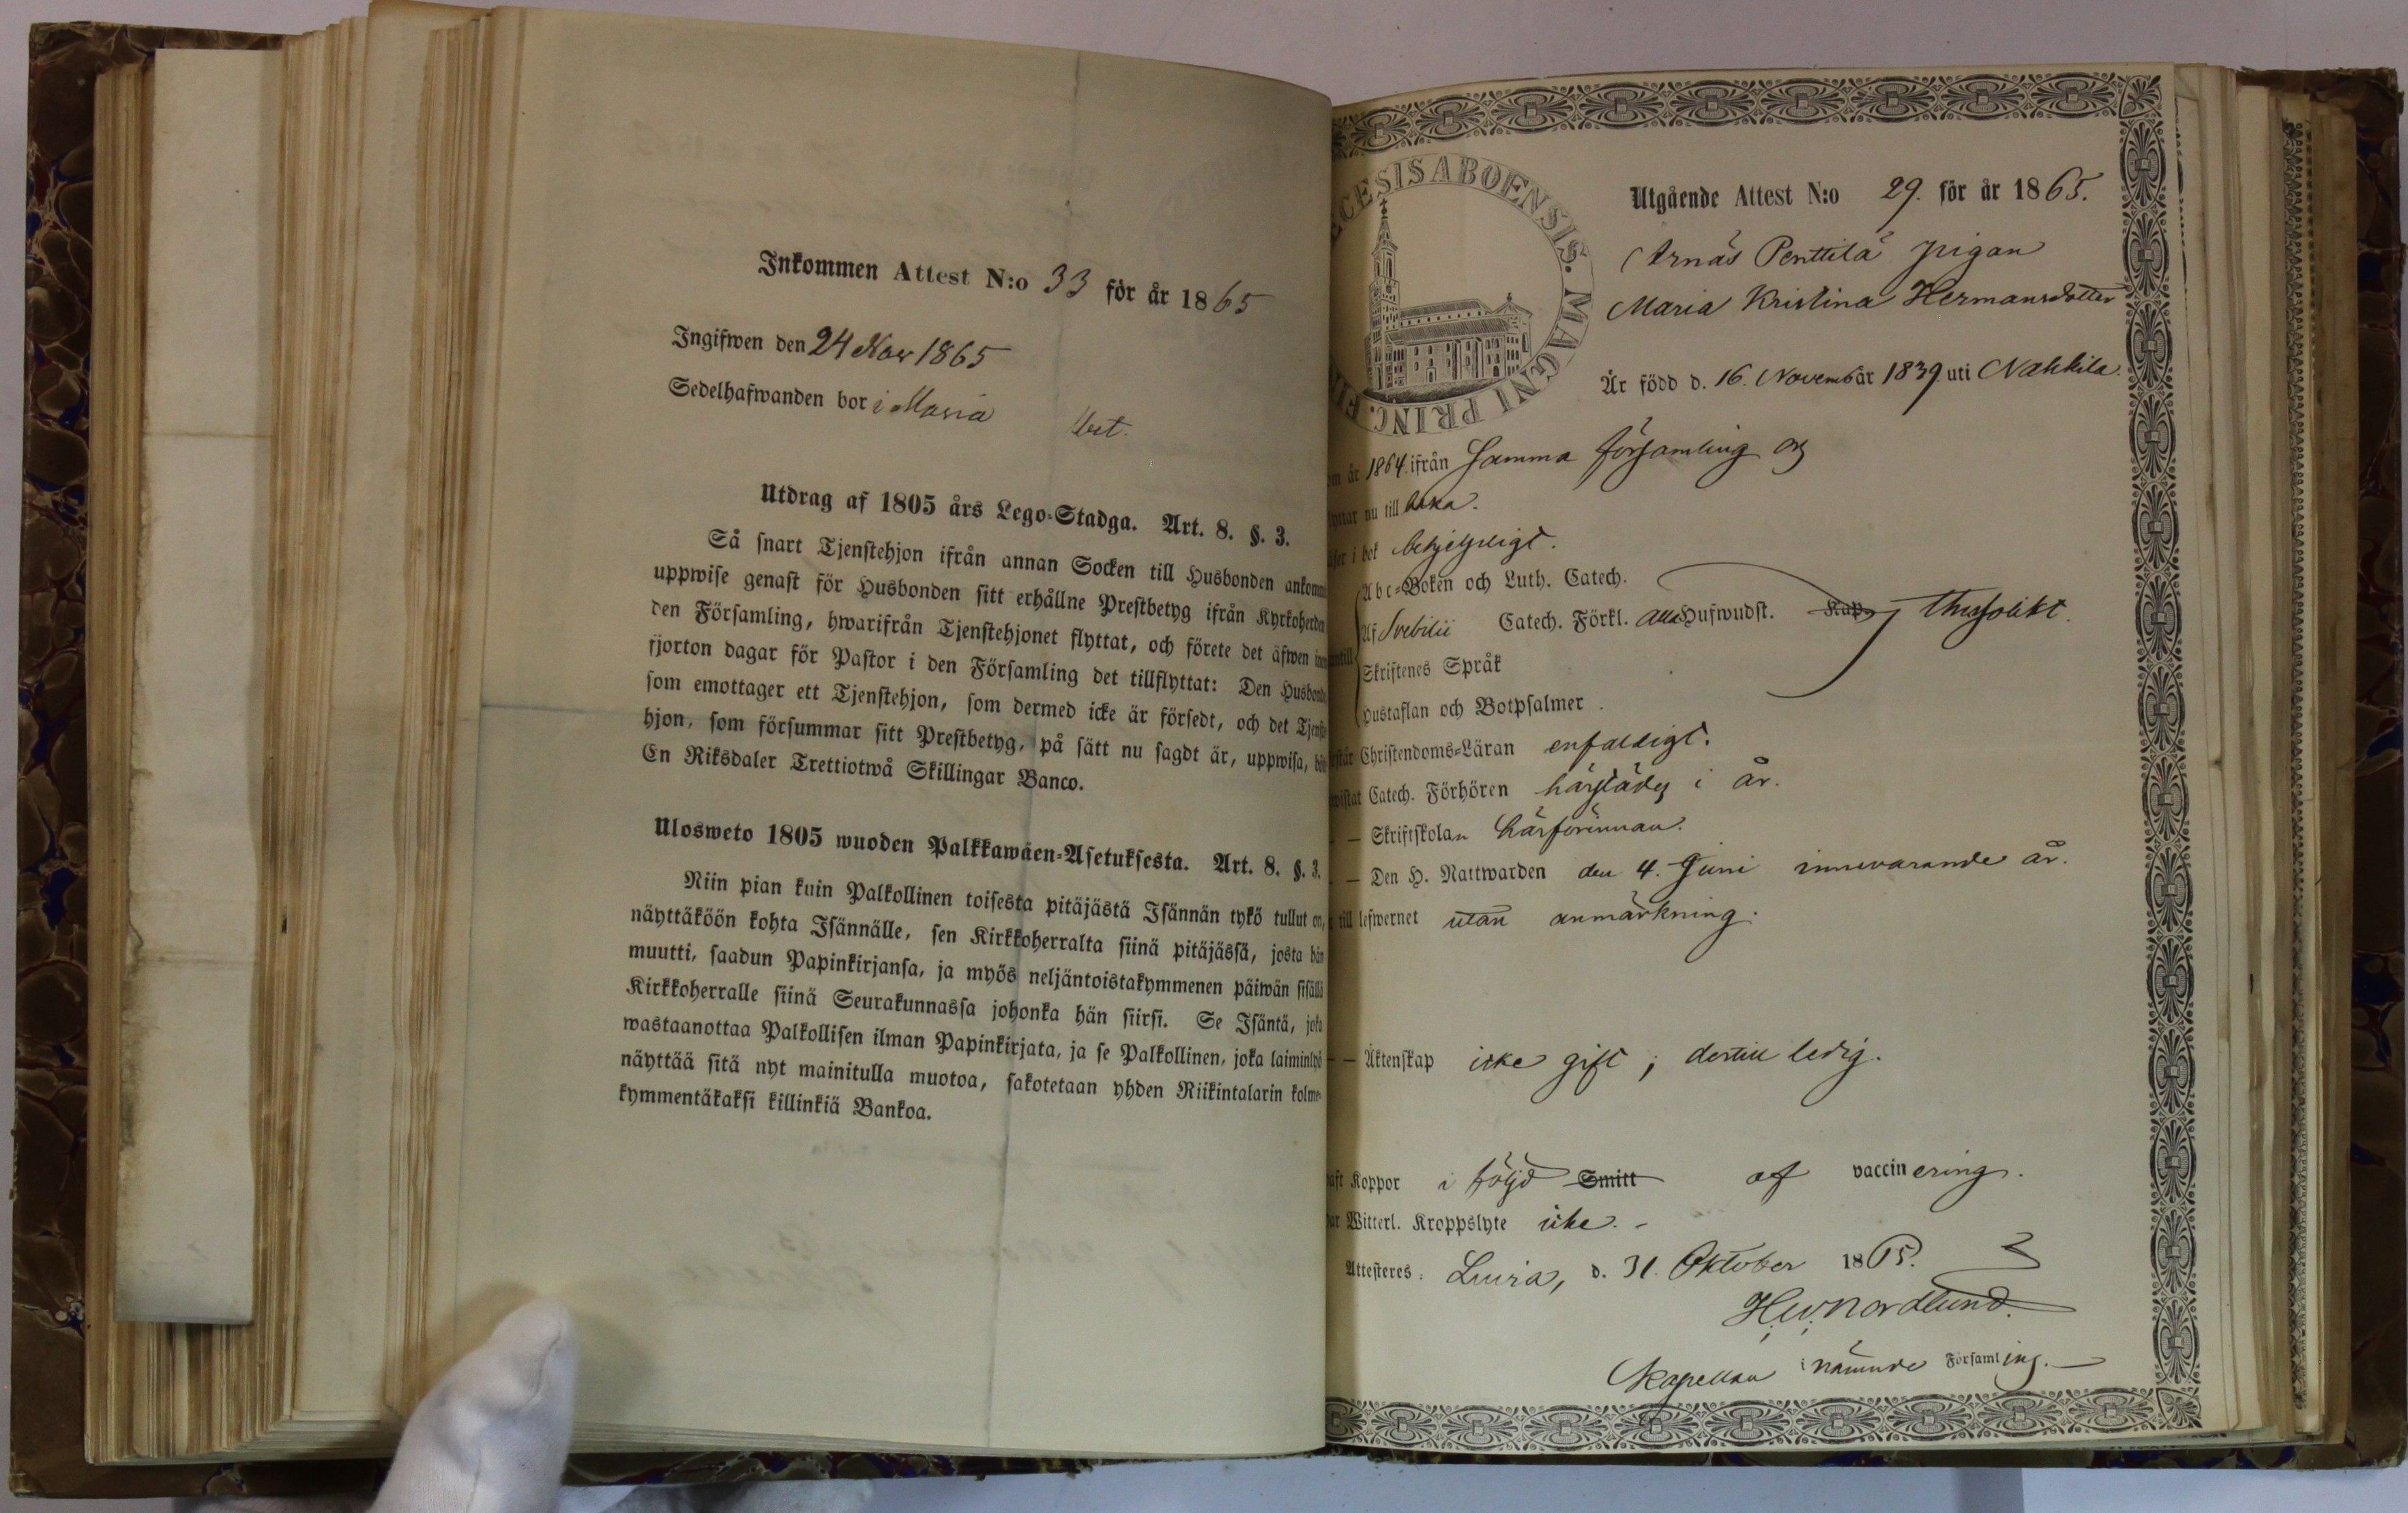 Inkommen Attest N:o 33 för år 1865
Ingifwen den 24 Nov 1865
Sedelhafwanden bor i Maria
Utdrag af 1805 års Lego-Stadga. Art. 8. §. 3.
Så snart Tjenstehjon ifrån annan Socken till Husbonden ankomm
uppwise genast för Husbonden sitt erhållne Prestbetyg ifrån Kyrkoherden
den Församling, hwarifrån Tjenstehjonet flyttat, och förete det äfwen inom
fjorton dagar för Pastor i den Församling det tillflyttat: Den Husbonde
som emottager ett Tjenstehjon, som dermed icke är försedt, och det Tjenste
hjon, som försummar sitt Prestbetyg, på sätt nu sagdt är, uppwisa, böte
En Riksdaler Trettiotwå Skillingar Banco.
Ulosweto 1805 wuoden Palkkawäen-Asetuksesta. Art. 8. §. 3.
Niin pian kuin Palkollinen toisesta pitäjästä Isännän tykö tullut on,
näyttäköön kohta Isännälle, sen Kirkkoherralta siinä pitäjässä, josta hän
muutti, saadun Papinkirjansa, ja myös neljäntoistakymmenen päiwän sisällä
Kirkkoherralle siinä Seurakunnassa johonka hän siirsi. Se Isäntä, joka
wastaanottaa Palkollisen ilman Papinkirjata, ja se Palkollinen, joka laiminlyö
näyttää sitä nyt mainitulla muotoa, sakotetaan yhden Riikintalarin kolme-
kymmentäkaksi killinkiä Bankoa.
ECESIS ABOENSIS. MAGNI PRINC. FI
Utgående Attest N:o 29. för år 1865.
Arnäs Penttilä pigan
Maria Kristina Hermansdotter
Är född d. 16. Novemb år 1839. uti Nakkila.
om år 1864. ifrån Samma församling och
lyttar nu till baka.
äser i bok behjelpligt.
Abc-Boken och Luth. Catech.
Af Svebilii Catech. Förkl. alla Hufwudst. Kap. Thusolikt.
Skriftenes Språk
Hustaflan och Botpsalmer.
rstår Christendoms-Läran enfaldigt.
wistat Catech. Förhören härstädes i år.
— Skriftskolan härförinnan.
— Den H. Nattwarden den 4. Juni innevarande år.
till lefwernet utan anmärkning.
— Äktenskap icke gift; dertill ledig.
aft Koppor i följd Smitt af vaccinering.
ar Witterl. Kroppslyte icke.
Attesteres: Luvia, d. 31. Oktober 1865.
H. W. Nordlund.
Kapellan i nämnde Församling.